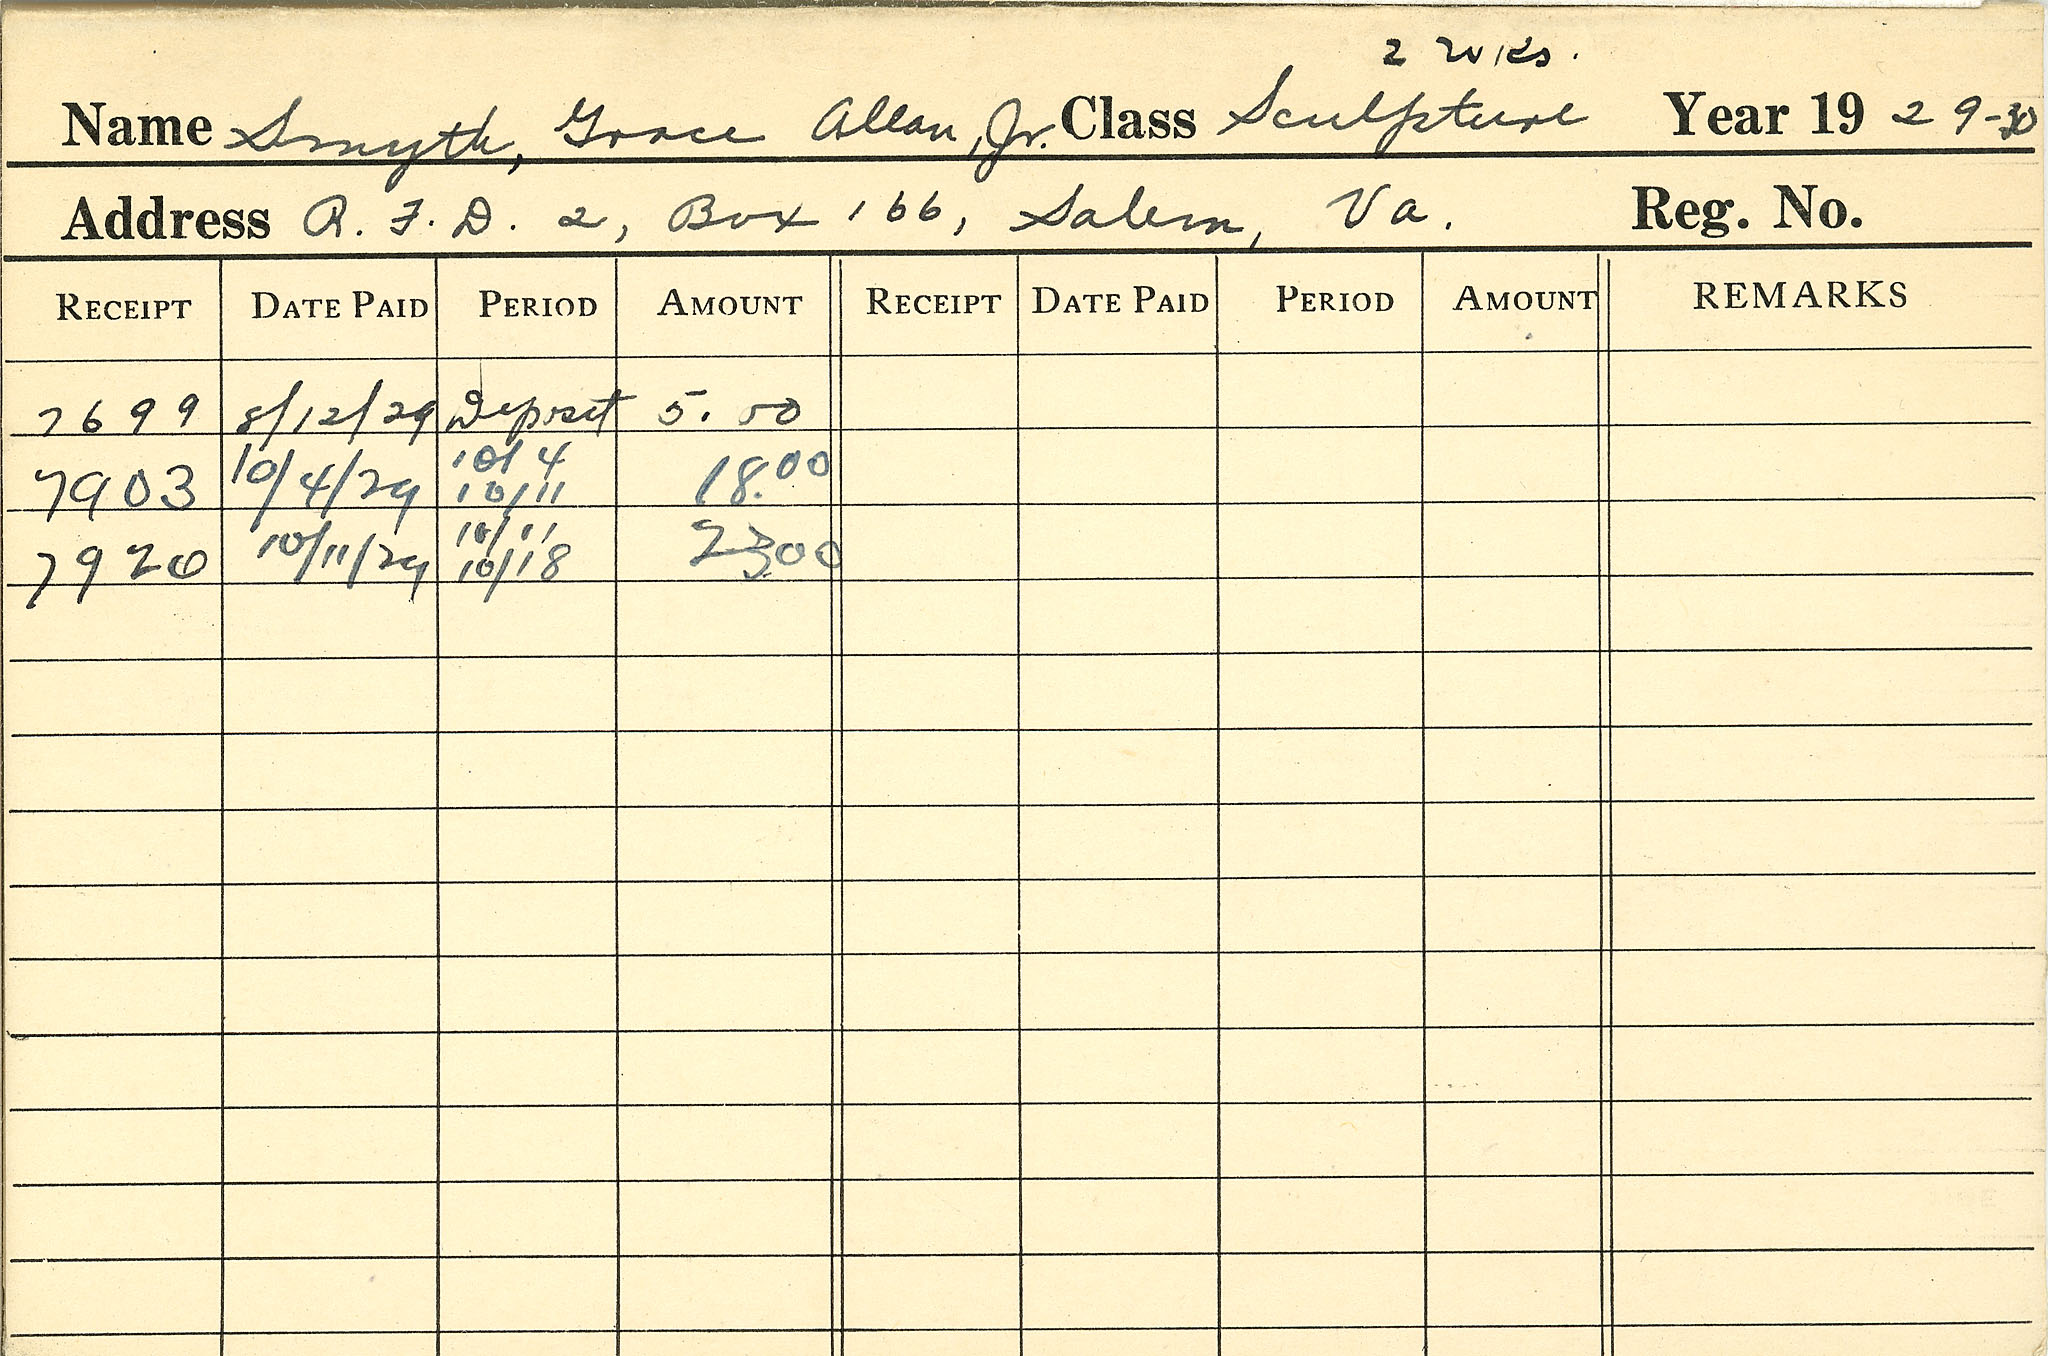 2 wks.
Name Smyth, Grace Allan, Jr. Class Sculpture Year 19 29-30
Address R. F. D. 2, Box 166, Salem, Va. Reg. No.
RECEIPT DATE PAID PERIOD AMOUNT RECEIPT DATE PAID PERIOD AMOUNT REMARKS
7699 8/12/29 Deposit 5.00
7903 10/4/29 10/4 10/11 18.00
7920 10/11/29 10/11 10/18 2300